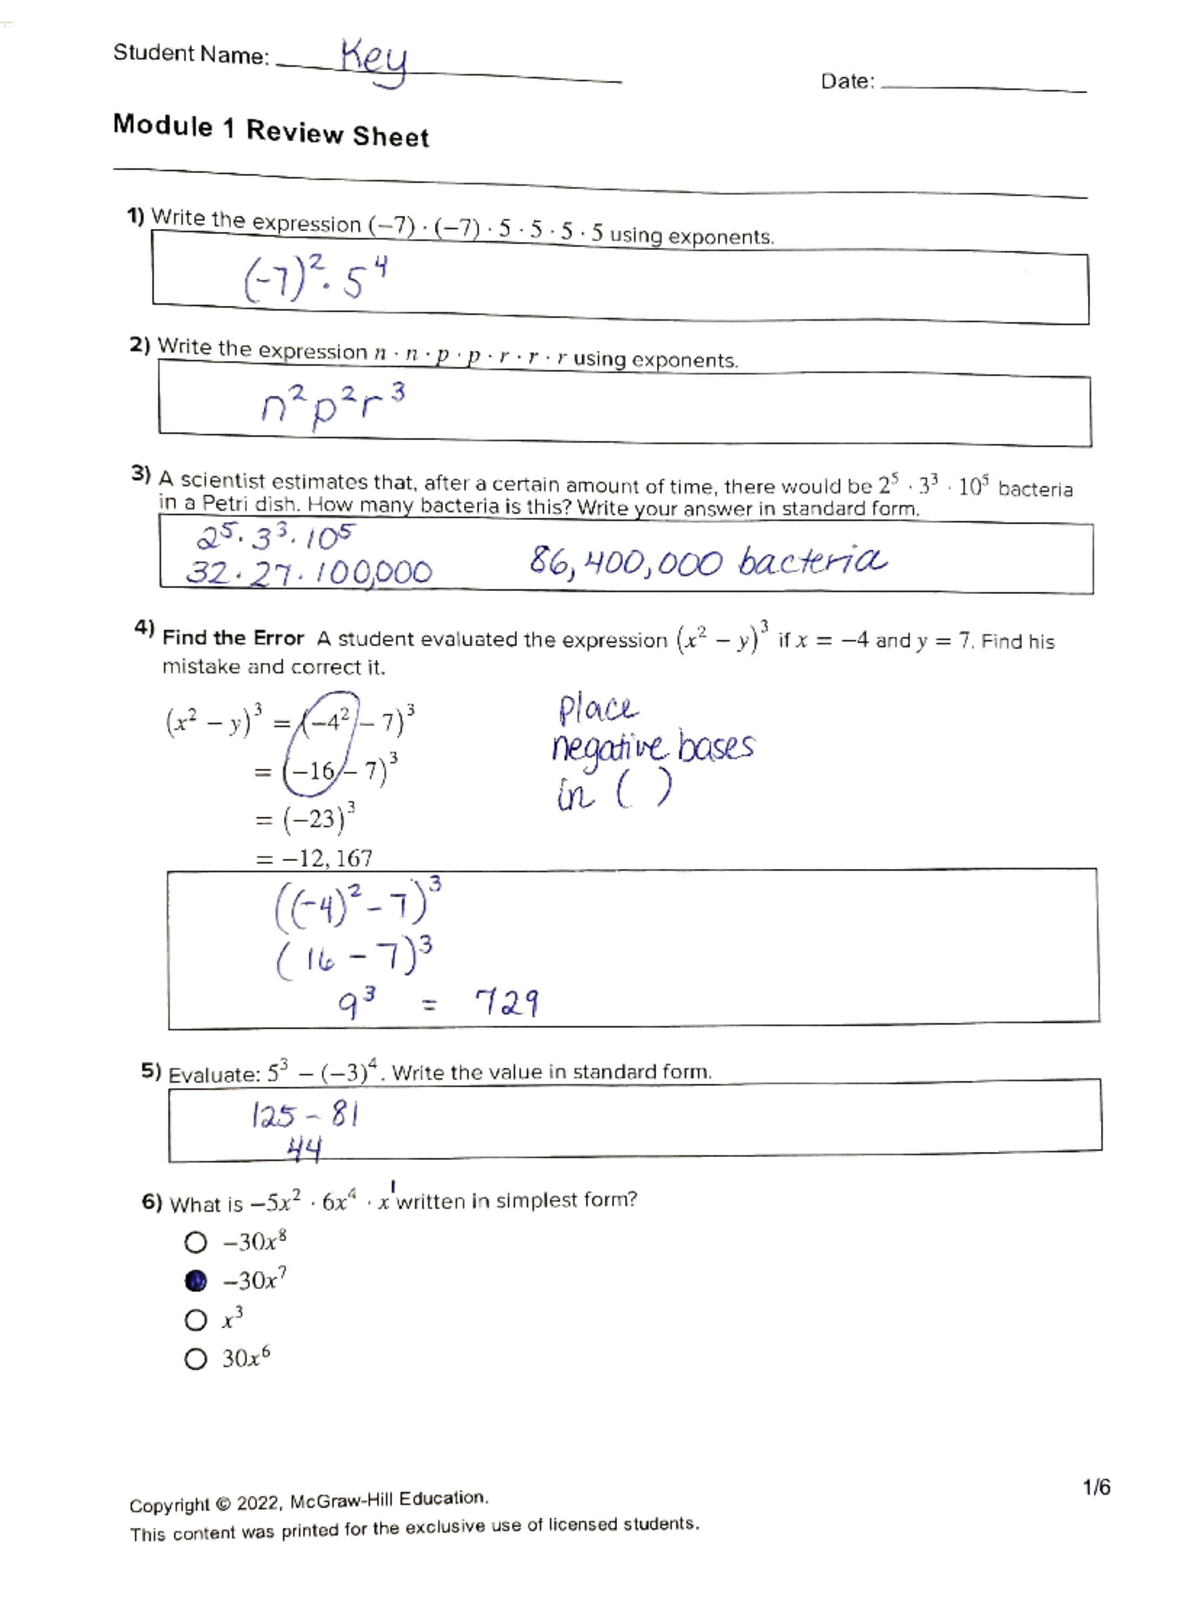 Student Name: Key
Date:
Module 1 Review Sheet
1) Write the expression (−7) · (−7) · 5 · 5 · 5 · 5 using exponents.
(-7)² · 5⁴
2) Write the expression n · n · p · p · r · r · r using exponents.
n²p²r³
3) A scientist estimates that, after a certain amount of time, there would be 2⁵ · 3³ · 10⁵ bacteria
in a Petri dish. How many bacteria is this? Write your answer in standard form.
2⁵ · 3³ · 10⁵
32 · 27 · 100,000 86,400,000 bacteria
4) Find the Error A student evaluated the expression (x² − y)³ if x = −4 and y = 7. Find his
mistake and correct it.
(x² − y)³ = (−4² − 7)³
= (−16 − 7)³
= (−23)³
= −12, 167
Place
negative bases
in ( )
((-4)² - 7)³
(16 - 7)³
9³ = 729
5) Evaluate: 5³ − (−3)⁴. Write the value in standard form.
125 - 81
44
6) What is −5x² · 6x⁴ · x¹ written in simplest form?
−30x⁸
−30x⁷
x³
30x⁶
1/6
Copyright © 2022, McGraw-Hill Education.
This content was printed for the exclusive use of licensed students.